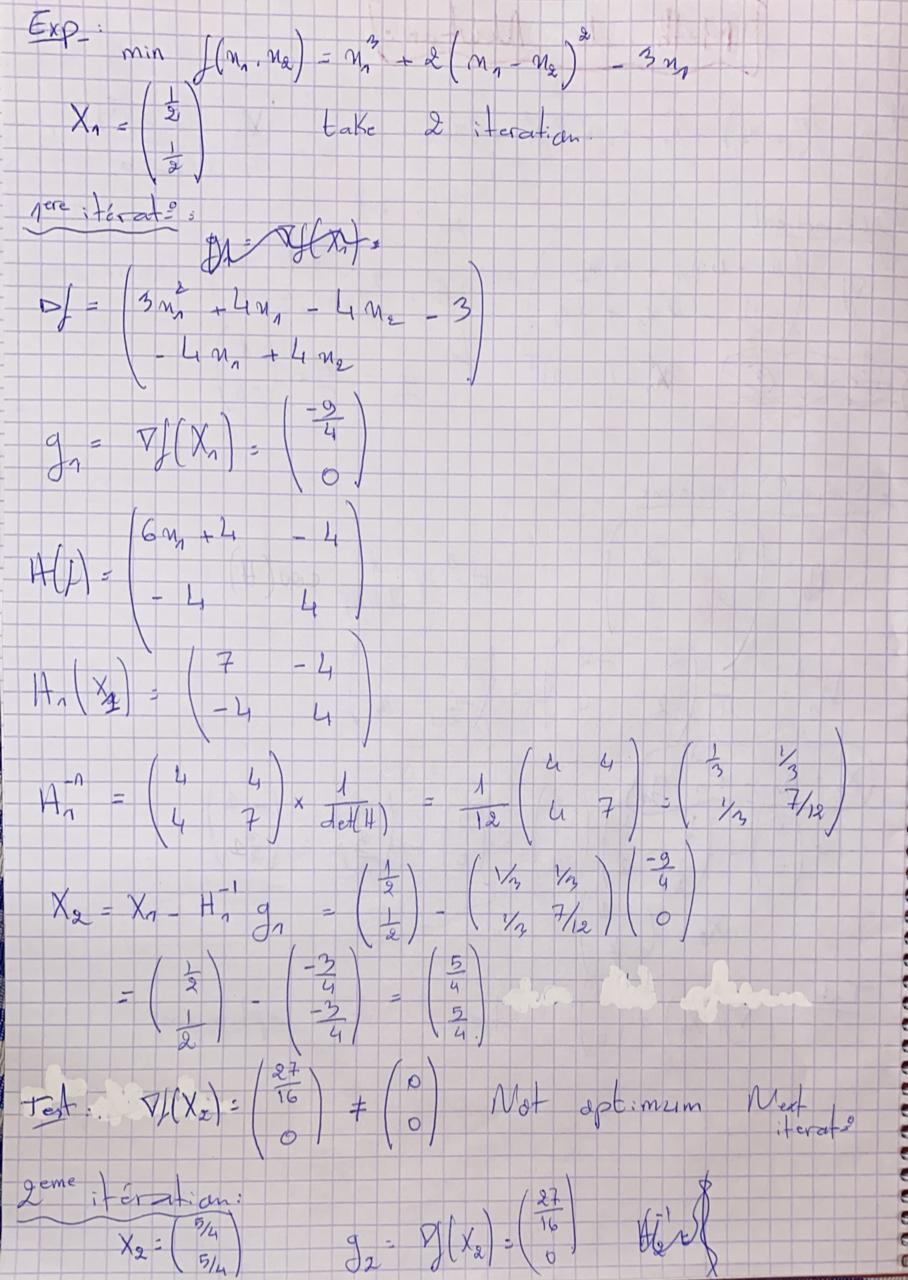 Exp_:
min f(x₁, x₂) = x₁³ + 2(x₁ - x₂)² - 3x₁
X₁ = (1/2 ; 1/2) take 2 iteration.
1ère itérat° :
∇f = (3x₁² + 4x₁ - 4x₂ - 3 ; -4x₁ + 4x₂)
g₁ = ∇f(X₁) = (-9/4 ; 0)
H(f) = (6x₁ + 4 -4 ; -4 4)
H₁(X₁) = (7 -4 ; -4 4)
H₁⁻¹ = (4 4 ; 4 7) × 1/det(H) = 1/12 (4 4 ; 4 7) = (1/3 1/3 ; 1/3 7/12)
X₂ = X₁ - H₁⁻¹ g₁ = (1/2 ; 1/2) - (1/3 1/3 ; 1/3 7/12) (-9/4 ; 0)
= (1/2 ; 1/2) - (-3/4 ; -3/4) = (5/4 ; 5/4)
Test: ∇f(X₂) = (27/16 ; 0) ≠ (0 ; 0) Not optimum Next iterat°
2eme itération:
X₂ = (5/4 ; 5/4) g₂ = ∇f(X₂) = (27/16 ; 0)